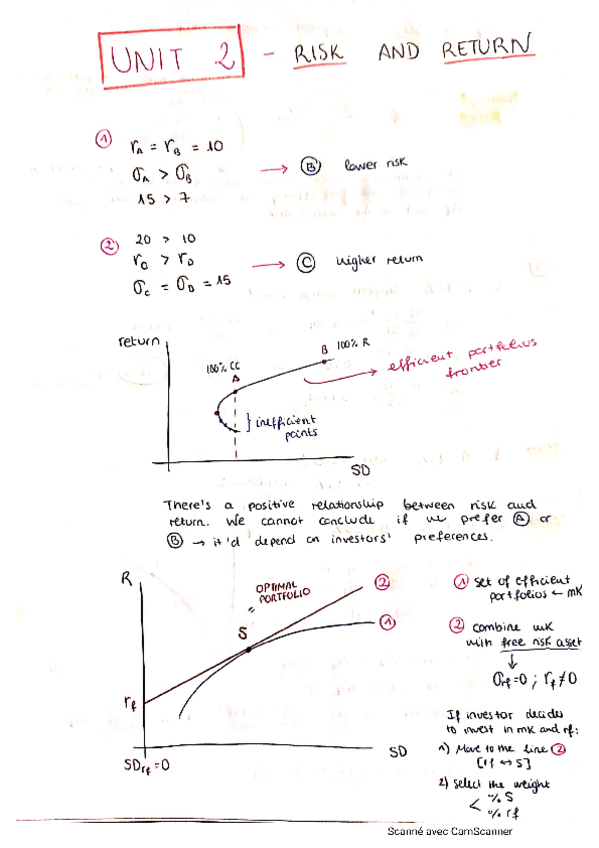 UNIT 2 - RISK AND RETURN
① rA = rB = 10
σA > σB → Ⓑ lower risk
15 > 7
② 20 > 10
rC > rD → Ⓒ higher return
σc = σD = 15
return
100% CC
A
B 100% R
efficient portfolios
frontier
} inefficient
points
SD
There's a positive relationship between risk and
return. We cannot conclude if we prefer Ⓐ or
Ⓑ → it'd depend on investors' preferences.
R
OPTIMAL
PORTFOLIO
=
S
②
①
rf
SD
SDrf = 0
① set of efficient
portfolios ← mk
② combine mk
with free risk asset
↓
σrf = 0 ; rf ≠ 0
If investor decides
to invest in mk and rf:
1) Move to the line ②
[rf ↔ S]
2) select the weight
< % S
% rf
Scanné avec CamScanner